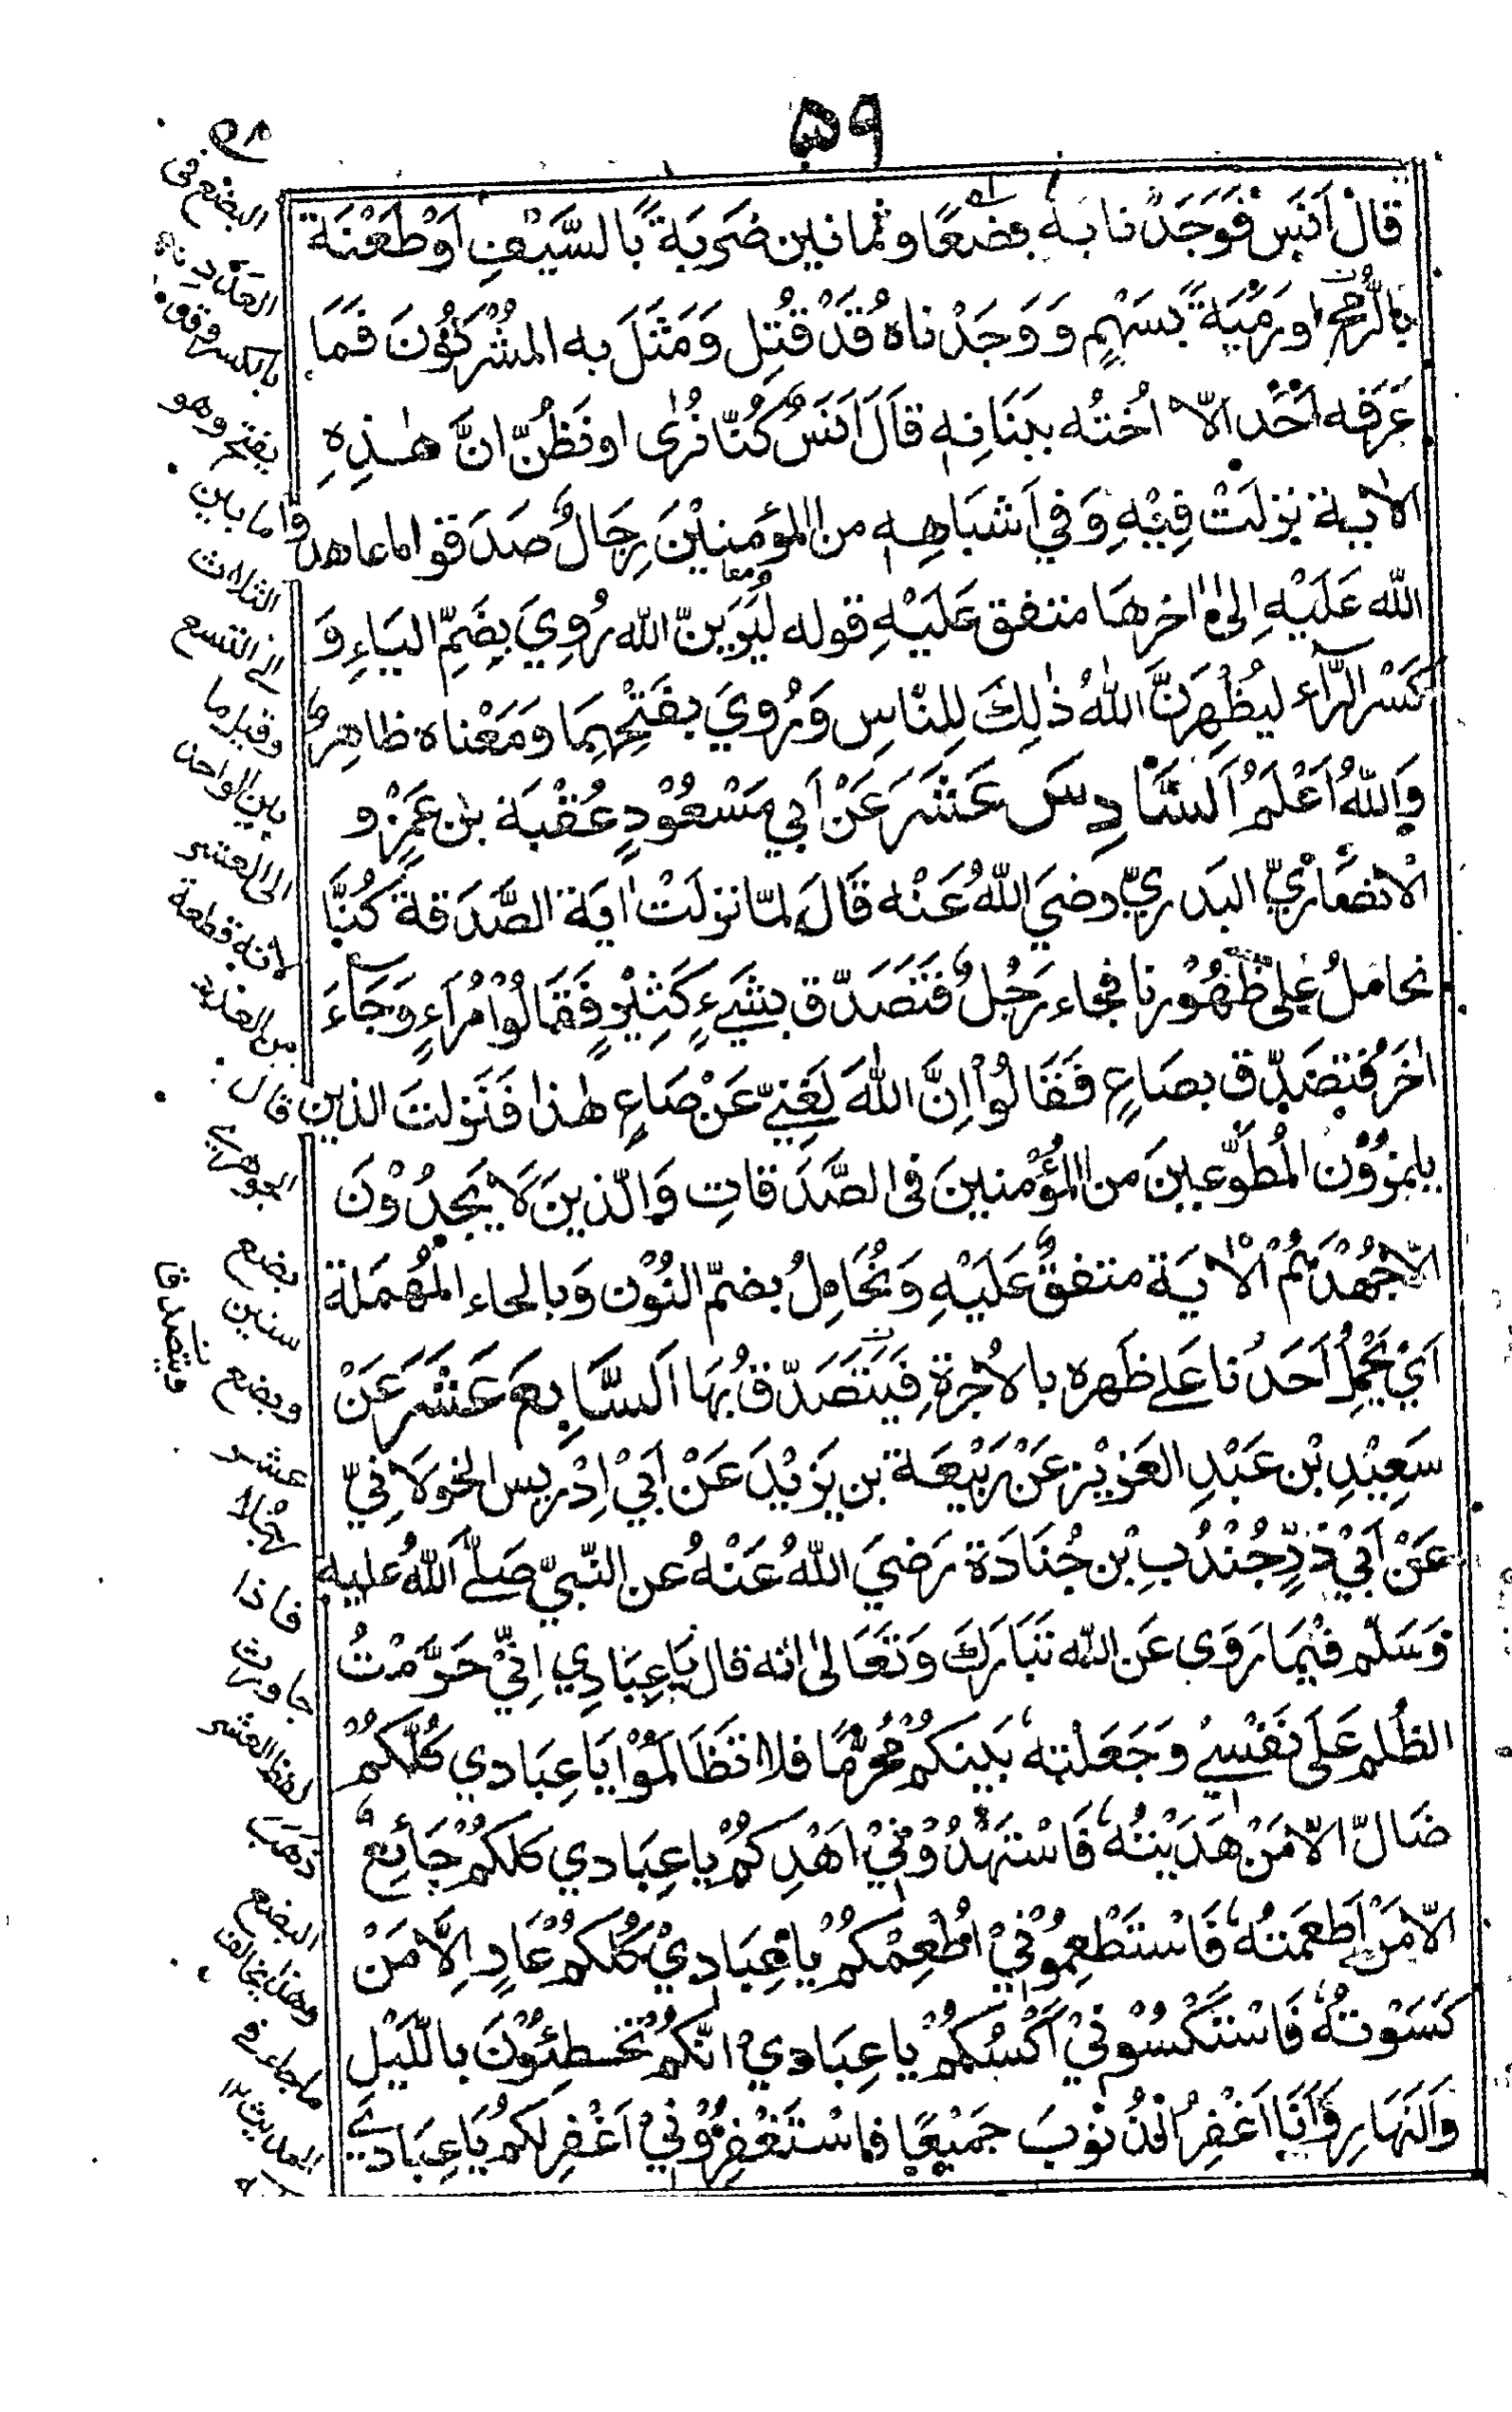 ۵۹
قال اَنَس فَوَجَدْنا به بضعًا وثمانين ضَربَةً بالسَّيْفِ اَوْ طَعْنَة
بالرُّمْحِ او رَمْيَةً بسَهْمٍ وَوَجَدْناه قَدْ قُتِل وَمَثَلَ به المُشْرِكُونَ فَمَا
عَرَفه اَحَد الّا اُخْتُه ببَنَانِه قاَلَ اَنَسٌ كُنّا نُرٰى او نَظُنّ انَّ هٰذِهِ
الاٰية نزلَتْ فِيْهِ وَفي اَشبَاهِه من المؤمِنِيْنَ رِجَالٌ صَدَقوا ما عاهدوا
الله عَلَيْهِ اِلىٰ اٰخرهَا متفق عَلَيْهِ قوله لَيُرِيَنّ الله رُوِيَ بِضَمِّ اليَاءِ وَ
كَسْر الرَّاء ليُظْهِرَنَّ اللهُ ذٰلِكَ لِلنَّاسِ وَرُوِيَ بفَتْحِهِمَا وَمَعْناه ظاهِرٌ
وَاللهُ اَعْلَمُ اَلسَّادِسَ عَشَرَ عَنْ اَبي مَسْعُوْدٍ عُقْبَة بْن عَمْرٍو
الْانصَاريّ البَدريّ رضيَ اللهُ عَنْه قَالَ لمّا نزلَتْ اٰيَة الصَّدَقة كُنَّا
نحامِلُ عَلى ظُهُوْرنا فجاء رَجُلٌ فَتَصَدّق بشَيءٍ كَثِيْرٍ فَقَالُوْا مُرَاءٍ وَجَاءَ
اٰخَر فَتصَدّق بصَاعٍ فَقَالُوْا اِنَّ اللهَ لَغَنِيّ عَنْ صَاعِ هٰذا فَنَزلتَ الذين
يلمِزُوْن المُطَّوّعِينَ من المُؤْمنينَ فى الصَّدَقاتِ وَالّذينَ لَا يَجِدُوْنَ
الّا جُهْدَهُمْ الْاٰيَة متفقٌ عَلَيْهِ وَنُحَامِلُ بضمّ النُوْن وَبالحاء المُهمَلة
اَيْ يَحْمِلُ اَحَدُنا عَلى ظَهره بالاُجرةِ فَيَتَصَدّقُ بُهَا اَلسَّابِعَ عَشَرَ عَنْ
سَعِيْدِ بْن عَبْدِ العَزيْز عَنْ رَبِيْعَة بن يَزيْدَ عَنْ اَبيْ اِدْريس الخولَانيّ
عَنْ اَبيْ ذرٍّ جُنْدُبِ بْن جُنَادَة رَضيَ اللهُ عَنْهُ عن النّبيّ صَلَّى اللهُ عليه
وَسَلّم فيْمَا رَوَى عَن الله تَبَارَكَ وَتَعَالىٰ انّه قال يَاعِبَادِي اِنّي حَرَّمْتُ
الظُلم عَلَى نَفْسيْ وَجَعَلْته بَيْنكُمْ مُحَرَّمًا فلا تَظَالَمُوْا يَاعِبَادي كُلّكُمْ
ضَالّ الّا مَنْ هَدَيْتُه فَاسْتَهْدُوْنيْ اَهْدِكُمْ ياعِبَادي كلكُمْ جَائعٌ
الّا مَنْ اَطعَمتُه فَاسْتَطْعِمُوْنيْ اُطْعِمْكُمْ ياعِبَاديْ كُلكُمْ عَارٍ اِلَّا مَنْ
كَسَوْتُهُ فَاسْتَكْسُوْنيْ اَكْسُكُمْ ياعِبَاديْ انّكُمْ تُخْطِئُوْنَ باللَّيْلِ
وَالنهَارِ وَاَنَا اَغْفِرُ الذُنُوْبَ جَمِيْعًا فاسْتَغْفِرُوْنيْ اَغْفِرلكُمْ يَاعِبَادِي
البضع فى
العدد
بالكسر وقد
يفتح وهو
ما بين
الثلاث
الى التسع
وقيل ما
بين الواحد
الى العشر
لانه قطعة
من العدد
قال
الجوهري
بضع
سنين
وبضع
عشر
رجلا
فاذا
جاوزت
لفظ العشر
ذهب
البضع
وهذا يخالف
ما جاء فى
الحديث ١٢
فيتصدق